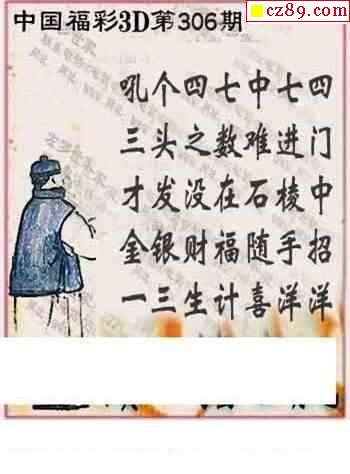 cz89.com
中国福彩3D第306期
吼个四七中七四
三头之数难进门
才发没在石棱中
金银财福随手招
一三生计喜洋洋